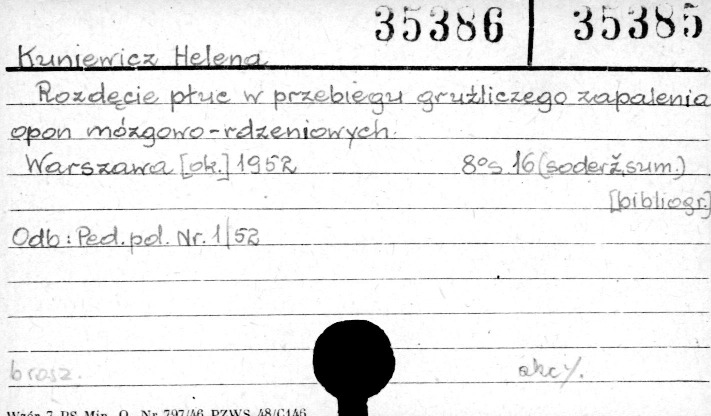 35386 35385
Kuniewicz Helena
Rozdęcie płuc w przebiegu gruźliczego zapalenia
opon mózgowo-rdzeniowych.
Warszawa [ok.] 1952 8° s 16 (soderž, sum.)
[bibliogr.]
Odb: Ped. pol. Nr. 1/52
brosz. akc/.
Wzór 7 PS Min. O. Nr 797/46 PZWS 48/C146